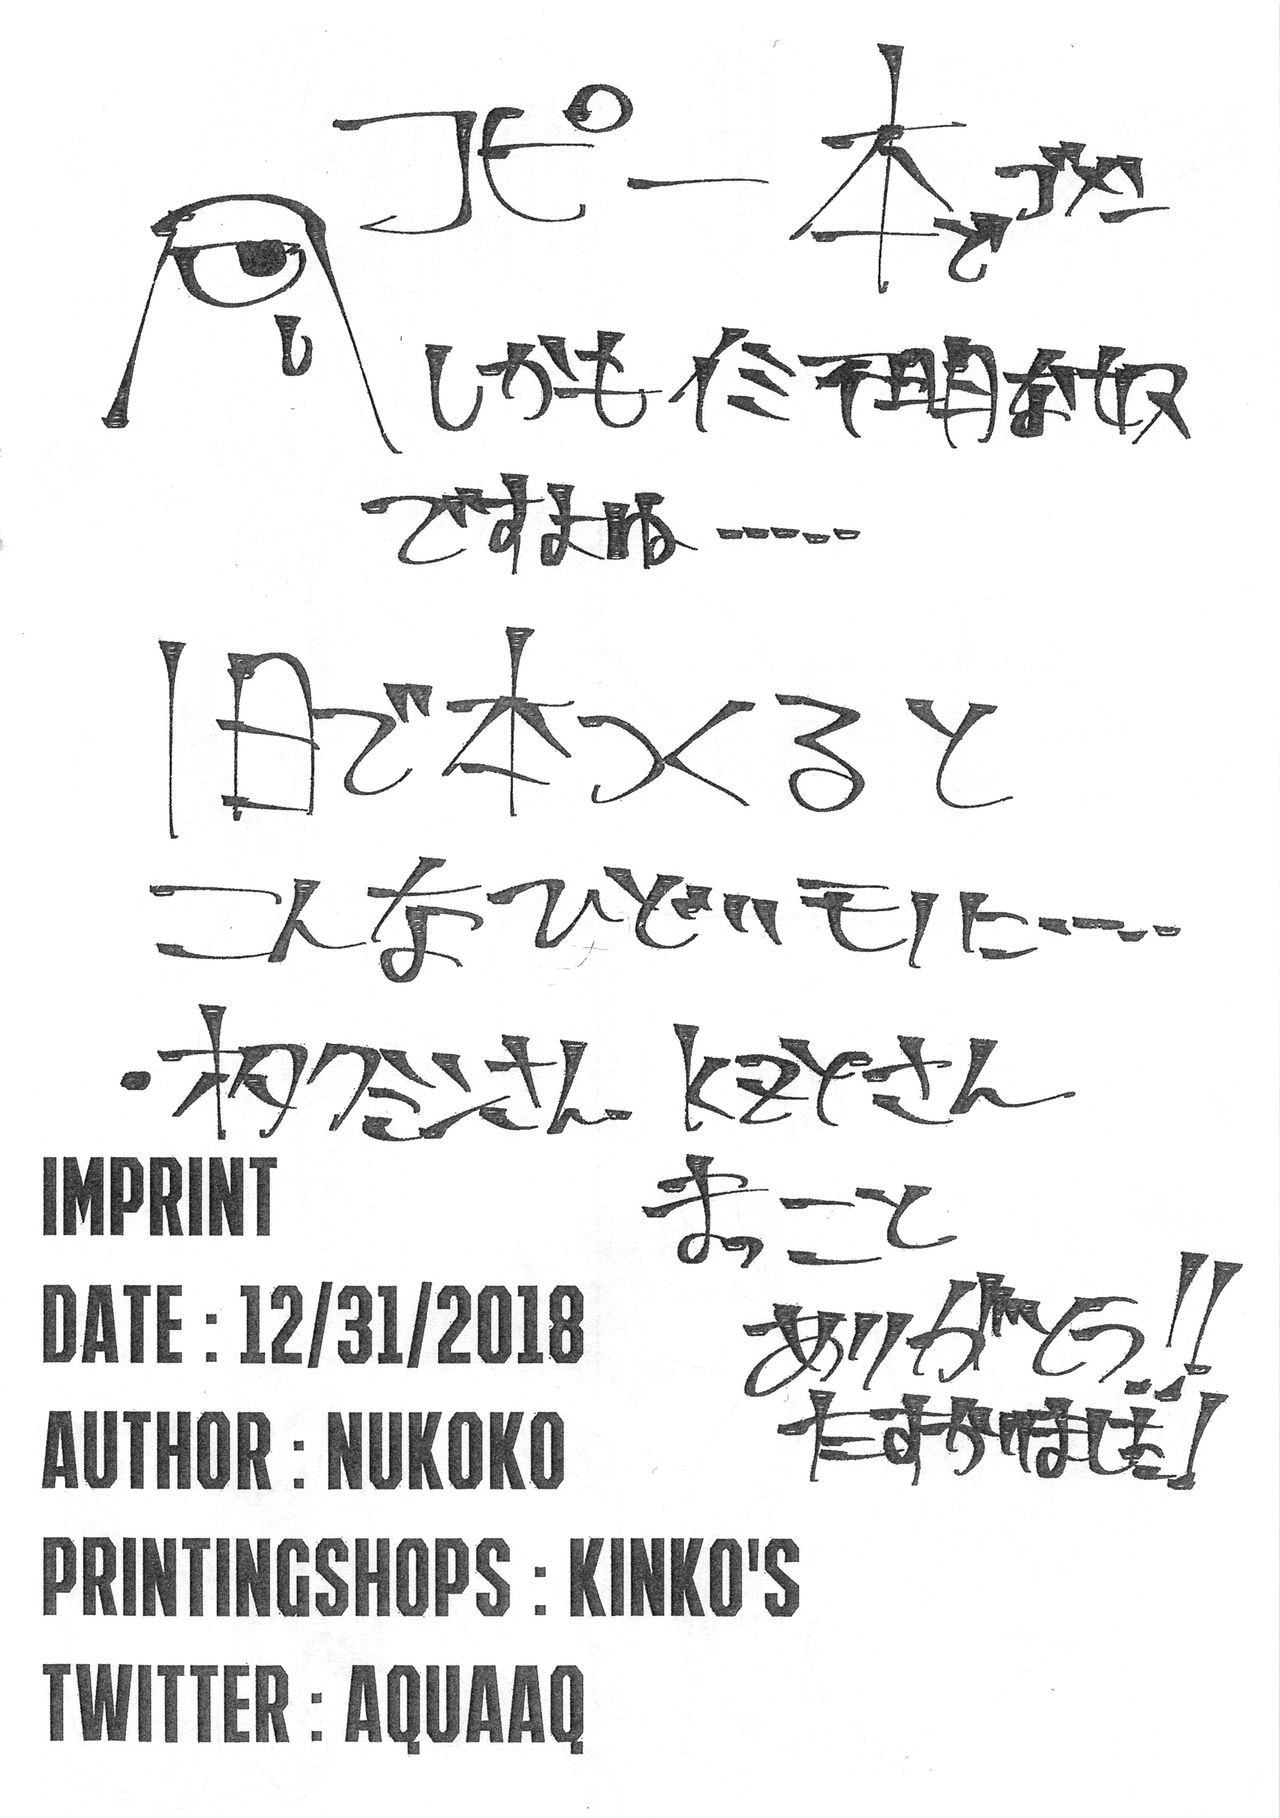 コピー本で
しかもイミ不明な奴
ですよね-----
1日で本つくると
こんなひどいモノに-----
・ネタクミシさん KZYさん
まっこと
ありがとう!!
たすかりました!
IMPRINT
DATE : 12/31/2018
AUTHOR : NUKOKO
PRINTINGSHOPS : KINKO'S
TWITTER : AQUAAQ